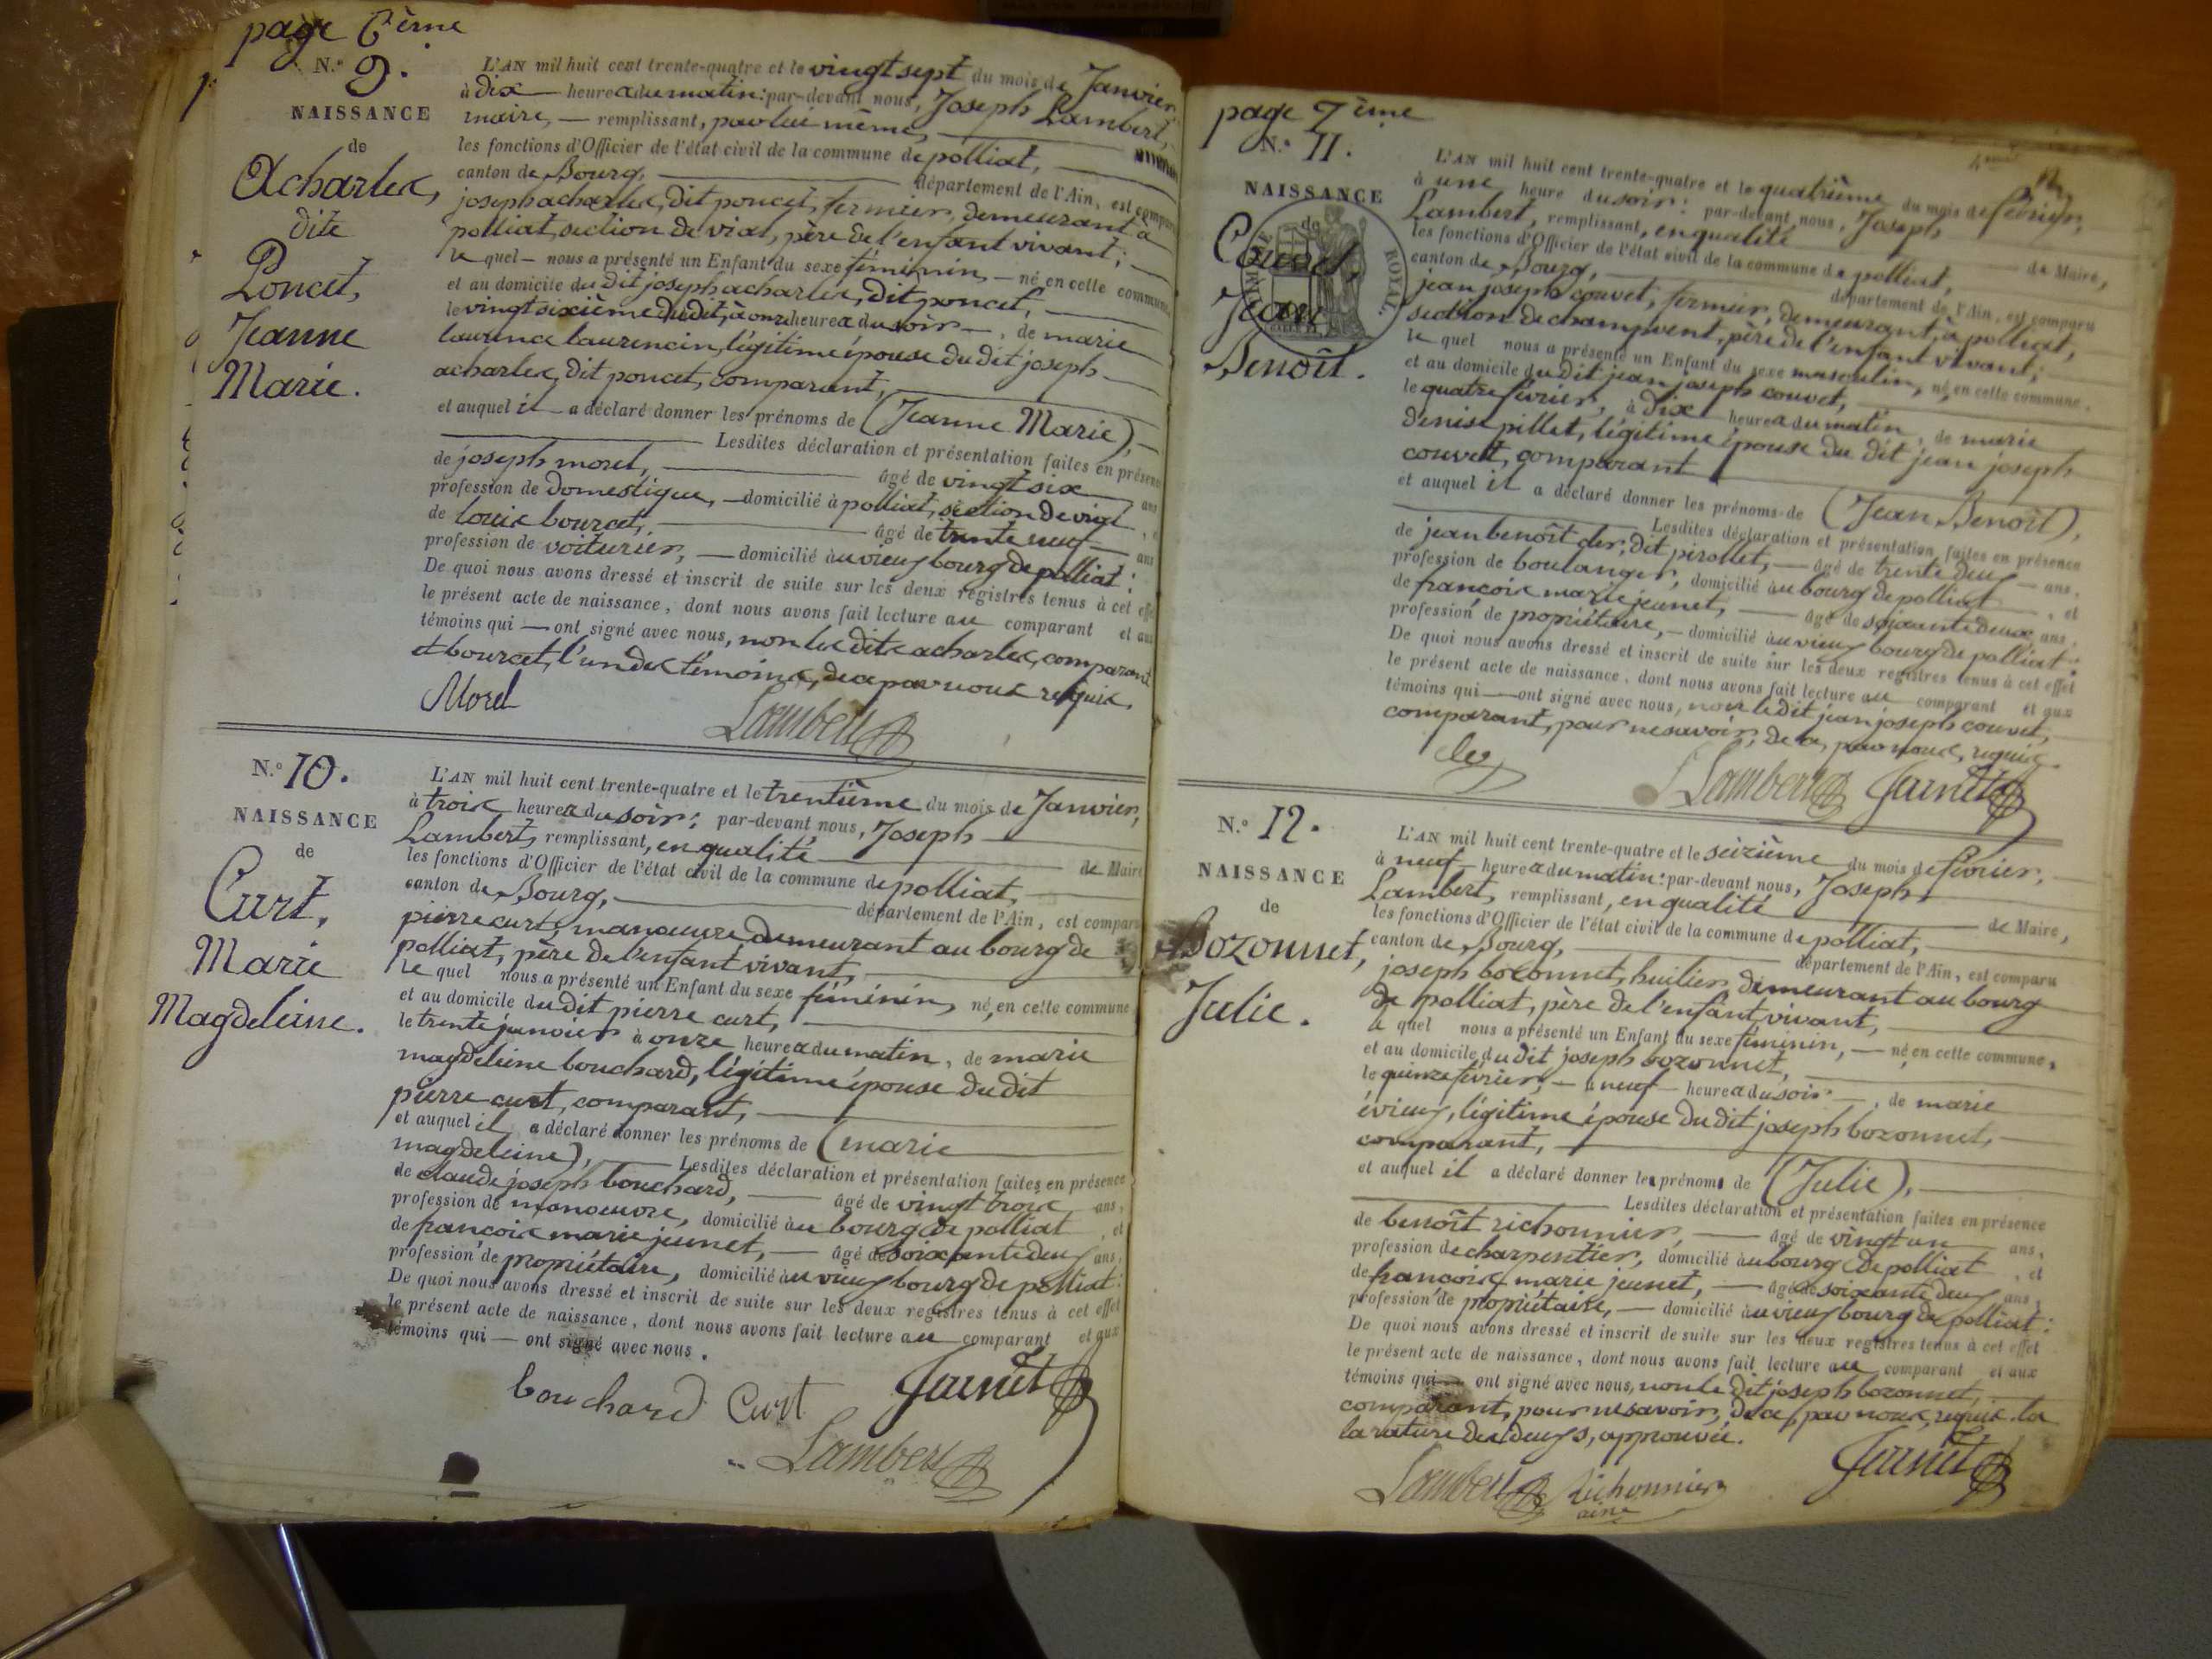 page 6ème
N.° 9.
NAISSANCE
de
Acharles,
dite
Poncet,
Jeanne
Marie.
L'AN mil huit cent trente-quatre et le vingt sept du mois de Janvier
à dix heures du matin: par-devant nous, Joseph Lambert,
maire, — remplissant, par lui même,
les fonctions d'Officier de l'état civil de la commune de polliat,
canton de Bourg, département de l'Ain, est comparu
joseph acharles, dit poncet, fermier, demeurant à
polliat, section de vial, père de l'enfant vivant;
le quel — nous a présenté un Enfant du sexe féminin, — né en cette commune
et au domicile du dit joseph acharles, dit poncet,
le vingt sixième du dit, à onze heures du soir —, de marie
laurence laurencin, légitime épouse du dit joseph
acharles, dit poncet, comparant,
et auquel il a déclaré donner les prénoms de (Jeanne Marie),
Lesdites déclaration et présentation faites en présence
de joseph morel, âgé de vingt six ans
profession de domestique, — domicilié à polliat, section de vial,
de louis bourcet, âgé de trente neuf ans
profession de voiturier, — domicilié au vieux bourg de polliat:
De quoi nous avons dressé et inscrit de suite sur les deux registres tenus à cet effet
le présent acte de naissance, dont nous avons fait lecture au comparant et aux
témoins qui — ont signé avec nous, non les dits acharles, comparant
et bourcet, l'un des témoins, de ce par nous requis.
Morel
Lambert
N.° 10.
NAISSANCE
de
Curt,
Marie
Magdeleine.
L'AN mil huit cent trente-quatre et le trentième du mois de Janvier,
à trois heures du soir: par-devant nous, Joseph
Lambert, remplissant, en qualité de Maire
les fonctions d'Officier de l'état civil de la commune de polliat,
canton de Bourg, département de l'Ain, est comparu
pierre curt, manoeuvre, demeurant au bourg de
polliat, père de l'enfant vivant,
le quel nous a présenté un Enfant du sexe féminin, né en cette commune
et au domicile du dit pierre curt,
le trente janvier à onze heures du matin, de marie
magdeleine bouchard, légitime épouse du dit
pierre curt, comparant,
et auquel il a déclaré donner les prénoms de (marie
magdeleine), Lesdites déclaration et présentation faites en présence
de claude joseph bouchard, âgé de vingt trois ans,
profession de manoeuvre, domicilié au bourg de polliat, et
de francois marie jeunet, — âgé de soixante deux ans,
profession de propriétaire, domicilié au vieux bourg de polliat:
De quoi nous avons dressé et inscrit de suite sur les deux registres tenus à cet effet
le présent acte de naissance, dont nous avons fait lecture au comparant et aux
témoins qui — ont signé avec nous.
bouchard Curt Jeunet
Lambert
page 7ème
N.° 11.
NAISSANCE
de
Couvet,
Jean
Benoît.
ROYAL.
L'AN mil huit cent trente-quatre et le quatrième du mois de février,
à une heure du soir: par-devant nous, Joseph
Lambert, remplissant, en qualité de Maire,
les fonctions d'Officier de l'état civil de la commune de polliat,
canton de Bourg, département de l'Ain, est comparu
jean joseph couvet, fermier, demeurant, à polliat,
section de champvent, père de l'enfant vivant;
le quel nous a présenté un Enfant du sexe masculin, né en cette commune,
et au domicile du dit jean joseph couvet,
le quatre février, à dix heures du matin, de marie
denise pillet, légitime épouse du dit jean joseph
couvet, comparant
et auquel il a déclaré donner les prénoms de (Jean Benoît),
Lesdites déclaration et présentation faites en présence
de jean benoît cler, dit pirollet, — âgé de trente deux ans,
profession de boulanger, domicilié au bourg de polliat, et
de françois marie jeunet, — âgé de soixante deux ans,
profession de propriétaire, — domicilié au vieux bourg de polliat:
De quoi nous avons dressé et inscrit de suite sur les deux registres tenus à cet effet
le présent acte de naissance, dont nous avons fait lecture au comparant et aux
témoins qui — ont signé avec nous, non le dit jean joseph couvet,
comparant, pour ne savoir, de ce, par nous, requis.
Lambert Jeunet
N.° 12.
NAISSANCE
de
Bozonnet,
Julie.
L'AN mil huit cent trente-quatre et le seizième du mois de février,
à neuf heures du matin: par-devant nous, Joseph
Lambert, remplissant, en qualité de Maire,
les fonctions d'Officier de l'état civil de la commune de polliat,
canton de Bourg, département de l'Ain, est comparu
joseph bozonnet, huilier, demeurant au bourg
de polliat, père de l'enfant vivant,
le quel nous a présenté un Enfant du sexe féminin, — né en cette commune,
et au domicile du dit joseph bozonnet,
le quinze février, — à neuf heures du soir —, de marie
évieux, légitime épouse du dit joseph bozonnet,
comparant,
et auquel il a déclaré donner les prénoms de (Julie),
Lesdites déclaration et présentation faites en présence
de benoît richonnier, âgé de vingt un ans,
profession de charpentier, domicilié au bourg de polliat, et
de francois marie jeunet, — âgé de soixante deux ans,
profession de propriétaire, — domicilié au vieux bourg de polliat:
De quoi nous avons dressé et inscrit de suite sur les deux registres tenus à cet effet
le présent acte de naissance, dont nous avons fait lecture au comparant et aux
témoins qui — ont signé avec nous, non le dit joseph bozonnet,
comparant, pour ne savoir, de ce, par nous, requis. la
la rature des deux s, approuvée.
Lambert Richonnier Jeunet
ainé